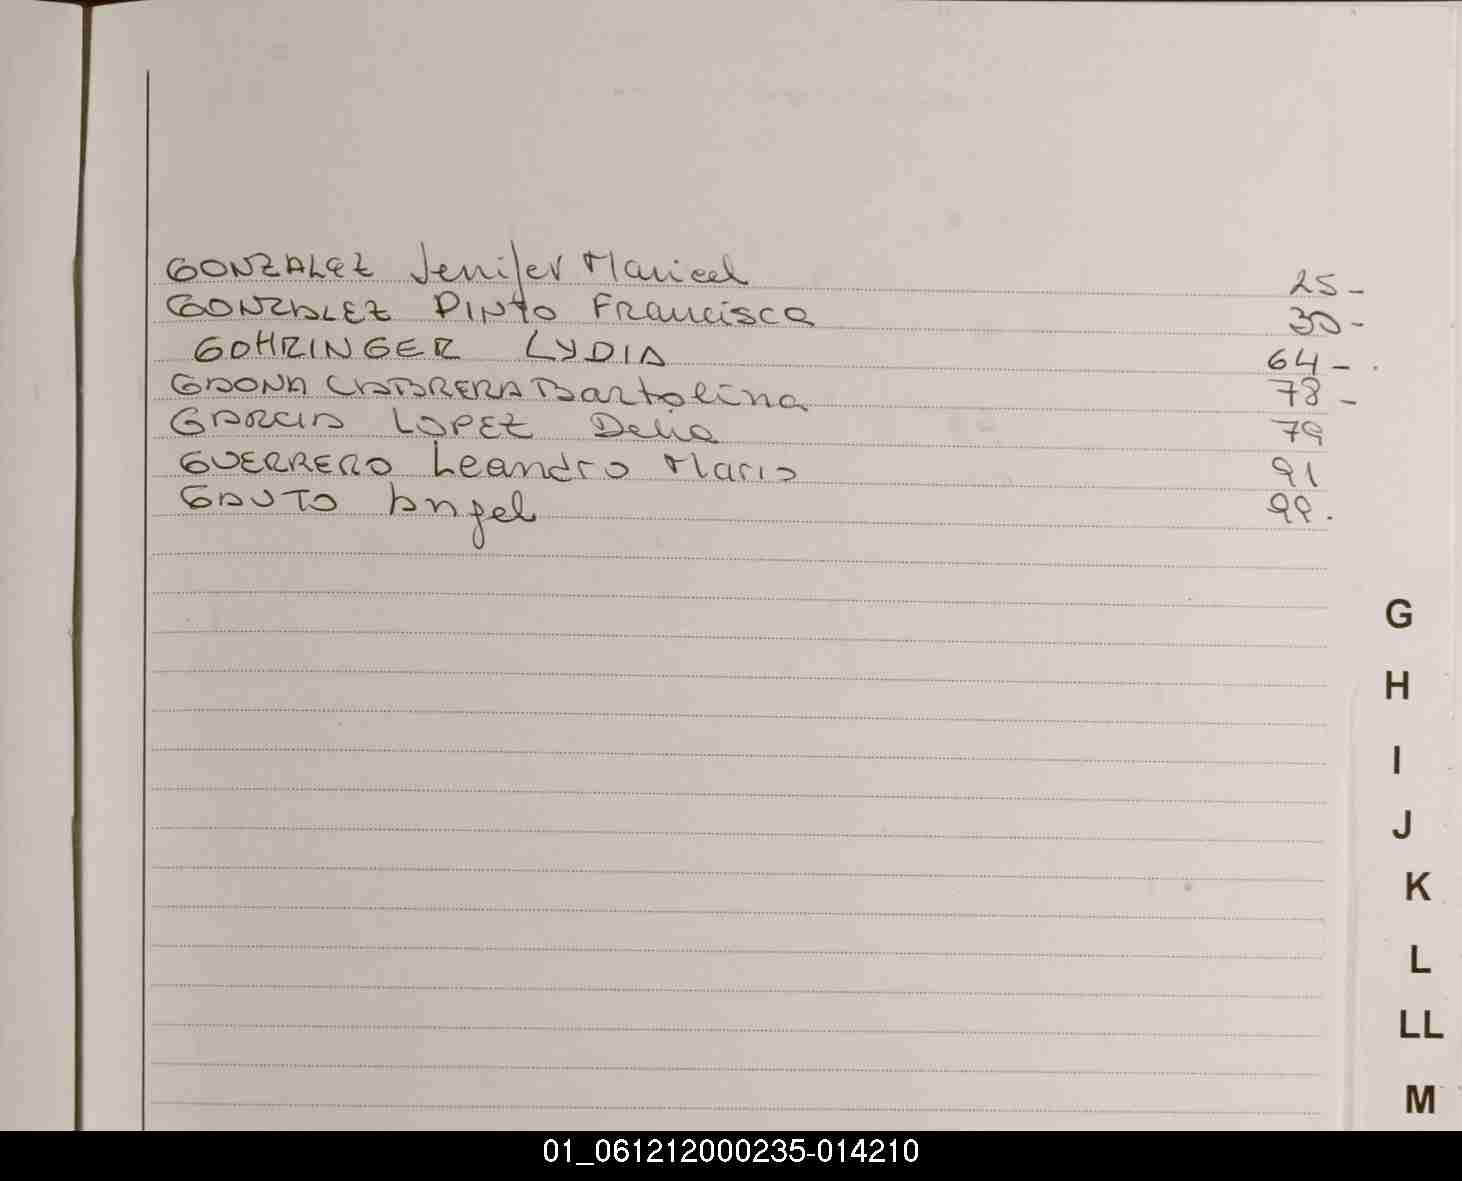 GONZALEZ Jenifer Maricel 25-
GONZALEZ PINTO Francisca 30-
GOHRINGER LYDIA 64-.
GAONA CABRERA Bartolina 78-
GARCIA LOPEZ Delia 79
GUERRERO Leandro Mario 91
GAUTO Angel 99.
G
H
I
J
K
L
LL
M
01_061212000235-014210